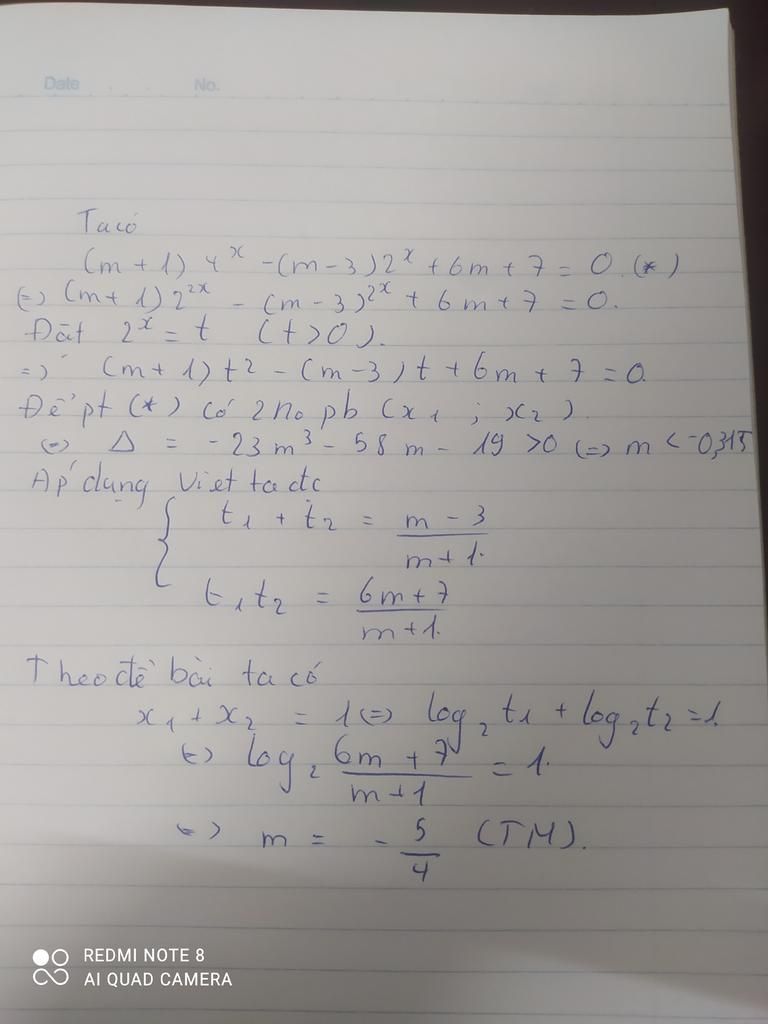 Date No.
Ta có
(m + 1) 4^x - (m - 3) 2^x + 6m + 7 = 0 (*)
(=) (m + 1) 2^{2x} - (m - 3)^{2^x} + 6m + 7 = 0.
Đặt 2^x = t (t > 0).
=) (m + 1) t^2 - (m - 3) t + 6m + 7 = 0
Để pt (*) có 2 no pb (x_1 ; x_2).
(=) Δ = - 23m^3 - 58m - 19 > 0 (=) m < -0,315
Áp dụng Viet ta đc
t_1 + t_2 = \frac{m - 3}{m + 1}.
t_1 t_2 = \frac{6m + 7}{m + 1}.
Theo đề bài ta có
x_1 + x_2 = 1 (=) log_2 t_1 + log_2 t_2 = 1.
(=) log_2 \frac{6m + 7}{m + 1} = 1.
(=) m = - \frac{5}{4} (TM).
REDMI NOTE 8
AI QUAD CAMERA